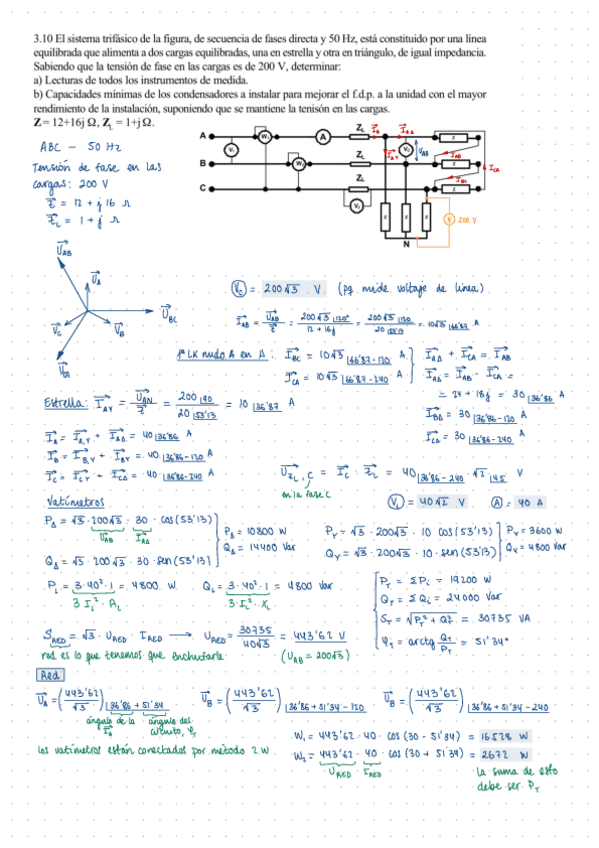 3.10 El sistema trifásico de la figura, de secuencia de fases directa y 50 Hz, está constituido por una línea
equilibrada que alimenta a dos cargas equilibradas, una en estrella y otra en triángulo, de igual impedancia.
Sabiendo que la tensión de fase en las cargas es de 200 V, determinar:
a) Lecturas de todos los instrumentos de medida.
b) Capacidades mínimas de los condensadores a instalar para mejorar el f.d.p. a la unidad con el mayor
rendimiento de la instalación, suponiendo que se mantiene la tenisón en las cargas.
Z = 12+16j Ω, Z_L = 1+j Ω.
ABC - 50 Hz
Tensión de fase en las
cargas: 200 V
Z = 12 + j 16 Ω
Z_L = 1 + j Ω
A
B
C
W1
W2
V1
A
Z_L
Z_L
Z_L
I_A
I_AΔ
I_AY
U_AB
I_AB
I_CA
I_BC
Z
Z
Z
N
V 200 V
U_AB
U_A
U_BC
U_B
U_C
V_C = 200√3 V (pq mide voltaje de línea)
I_AB = U_AB / Z = 200√3 |120 / 12 + 16j = 200√3 |120 / 20 |53'13 = 10√3 |66'87 A
1ª LK nudo A en Δ: I_BC = 10√3 |66'87-120 A
I_CA = 10√3 |66'87-240 A
I_AΔ + I_CA = I_AB
I_AΔ = I_AB - I_CA =
= 24 + 18j = 30 |36'86 A
I_BΔ = 30 |36'86-120 A
I_CΔ = 30 |36'86-240 A
Estrella: I_AY = U_AN / Z = 200 |90 / 20 |53'13 = 10 |36'87 A
I_A = I_AY + I_AΔ = 40 |36'86 A
I_B = I_BY + I_BΔ = 40 |36'86-120 A
I_C = I_CY + I_CΔ = 40 |36'86-240 A
U_ZL,C = I_C · Z_L = 40 |36'86-240 · √2 |45 V
en la fase C
V_L = 40√2 V A = 40 A
Vatímetros
P_Δ = √3 · 200√3 · 30 · cos (53'13)
U_AB I_AΔ
Q_Δ = √3 · 200√3 · 30 · sen (53'13)
P_Δ = 10800 W
Q_Δ = 14400 Var
P_Y = √3 · 200√3 · 10 cos (53'13)
Q_Y = √3 · 200√3 · 10 · sen (53'13)
P_Y = 3600 W
Q_Y = 4800 Var
P_L = 3·40²·1 = 4800 W
3 I_L² · R_L
Q_L = 3·40²·1 = 4800 Var
3·I_L² · X_L
P_T = ΣPi = 19200 W
Q_T = ΣQi = 24000 Var
S_T = √(P_T² + Q_T²) = 30735 VA
φ_T = arctg Q_T / P_T = 51'34°
S_RED = √3 · U_RED · I_RED → U_RED = 30735 / 40√3 = 443'62 V
red es lo que tenemos que enchufarle (U_AB = 200√3)
Red
U_A = (443'62 / √3) |36'86 + 51'34
ángulo de la I_A ángulo del circuito, φ_T
U_B = (443'62 / √3) |36'86 + 51'34 - 120
U_B = (443'62 / √3) |36'86 + 51'34 - 240
los vatímetros están conectados por método 2 W.
W1 = 443'62 · 40 · cos (30 - 51'34) = 16528 W
W2 = 443'62 · 40 · cos (30 + 51'34) = 2672 W
U_RED I_RED
la suma de esto
debe ser P_T